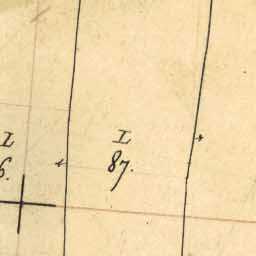 L
6.
L
87.